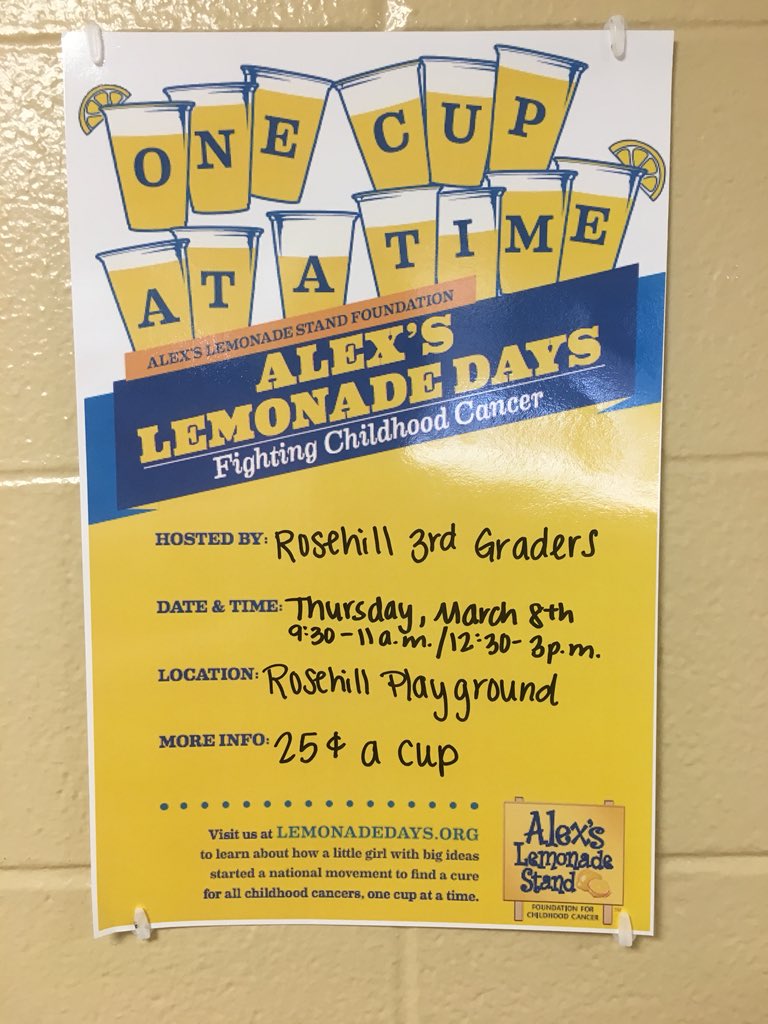 ONE CUP
AT A TIME
ALEX'S LEMONADE STAND FOUNDATION
ALEX'S
LEMONADE DAYS
Fighting Childhood Cancer
HOSTED BY: Rosehill 3rd Graders
DATE & TIME: Thursday, March 8th
9:30-11 a.m./12:30-3p.m.
LOCATION: Rosehill Playground
MORE INFO: 25¢ a cup
Visit us at LEMONADEDAYS.ORG
to learn about how a little girl with big ideas
started a national movement to find a cure
for all childhood cancers, one cup at a time.
Alex's
Lemonade
Stand
FOUNDATION FOR
CHILDHOOD CANCER